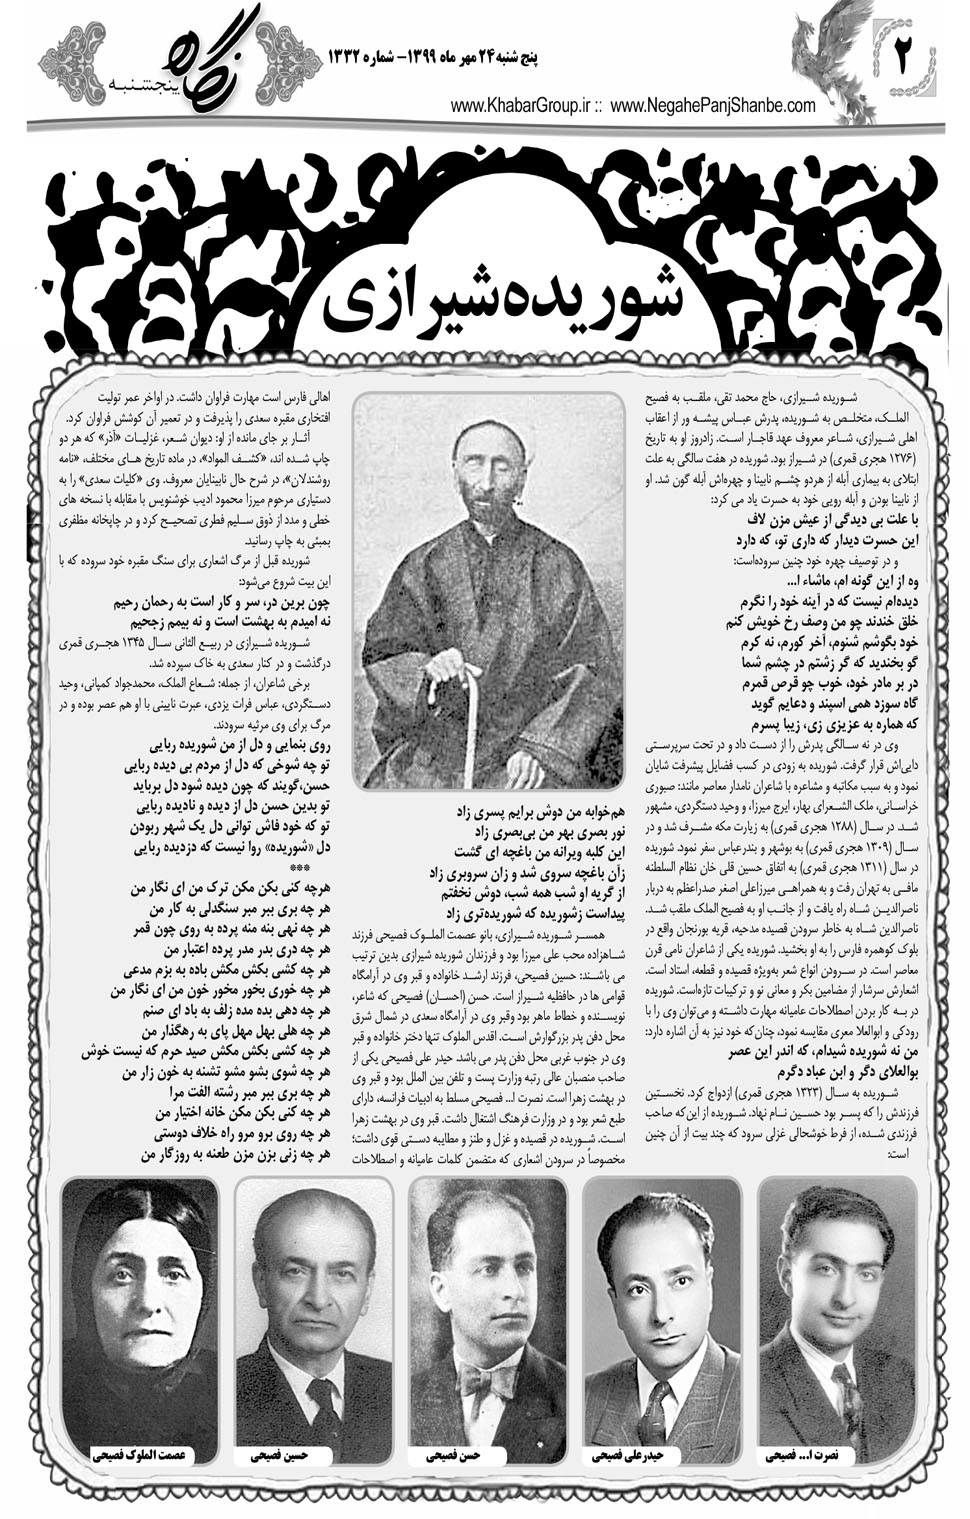 ۲
پنج شنبه ۲۴ مهر ماه ۱۳۹۹- شماره ۱۳۳۲
نگاه
پنجشنبه
www.KhabarGroup.ir :: www.NegahePanjShanbe.com
شوریده‌شیرازی
شوریده شیرازی، حاج محمد تقی، ملقب به فصیح
الملک، متخلص به شوریده، پدرش عباس پیشه ور از اعقاب
اهلی شیرازی، شاعر معروف عهد قاجار است. زادروز او به تاریخ
(۱۲۷۶ هجری قمری) در شیراز بود. شوریده در هفت سالگی به علت
ابتلای به بیماری آبله از هردو چشم نابینا و چهره‌اش آبله گون شد. او
از نابینا بودن و آبله رویی خود به حسرت یاد می کرد:
با علت بی دیدگی از عیش مزن لاف
این حسرت دیدار که داری تو، که دارد
و در توصیف چهره خود چنین سروده‌است:
وه از این گونه ام، ماشاء ا...
دیده‌ام نیست که در آینه خود را نگرم
خلق خندند چو من وصف رخ خویش کنم
خود بگوشم شنوم، آخر کورم، نه کرم
گو بخندید که گر زشتم در چشم شما
در بر مادر خود، خوب چو قرص قمرم
گاه سوزد همی اسپند و دعایم گوید
که هماره به عزیزی زی، زیبا پسرم
وی در نه سالگی پدرش را از دست داد و در تحت سرپرستی
دایی‌اش قرار گرفت. شوریده به زودی در کسب فضایل پیشرفت شایان
نمود و به سبب مکاتبه و مشاعره با شاعران نامدار معاصر مانند: صبوری
خراسانی، ملک الشعرای بهار، ایرج میرزا، و وحید دستگردی، مشهور
شد. در سال (۱۲۸۸ هجری قمری) به زیارت مکه مشرف شد و در
سال (۱۳۰۹ هجری قمری) به بوشهر و بندرعباس سفر نمود. شوریده
در سال (۱۳۱۱ هجری قمری) به اتفاق حسین قلی خان نظام السلطنه
مافی به تهران رفت و به همراهی میرزاعلی اصغر صدراعظم به دربار
ناصرالدین شاه راه یافت و از جانب او به فصیح الملک ملقب شد.
ناصرالدین شاه به خاطر سرودن قصیده مدحیه، قریه بورنجان واقع در
بلوک کوهمره فارس را به او بخشید. شوریده یکی از شاعران نامی قرن
معاصر است. در سرودن انواع شعر به‌ویژه قصیده و قطعه، استاد است.
اشعارش سرشار از مضامین بکر و معانی نو و ترکیبات تازه‌است. شوریده
در به کار بردن اصطلاحات عامیانه مهارت داشته و می‌توان وی را با
رودکی و ابوالعلا معری مقایسه نمود، چنان‌که خود نیز به آن اشاره دارد:
من نه شوریده شیدام، که اندر این عصر
بوالعلای دگر و ابن عباد دگرم
شوریده به سال (۱۳۲۳ هجری قمری) ازدواج کرد. نخستین
فرزندش را که پسر بود حسین نام نهاد. شوریده از این‌که صاحب
فرزندی شده، از فرط خوشحالی غزلی سرود که چند بیت از آن چنین
است:
هم‌خوابه من دوش برایم پسری زاد
نور بصری بهر من بی‌بصری زاد
این کلبه ویرانه من باغچه ای گشت
زآن باغچه سروی شد و زان سروبری زاد
از گریه او شب همه شب، دوش نخفتم
پیداست زشوریده که شوریده‌تری زاد
همسر شوریده شیرازی، بانو عصمت الملوک فصیحی فرزند
شاهزاده محب علی میرزا بود و فرزندان شوریده شیرازی بدین ترتیب
می باشند: حسین فصیحی، فرزند ارشد خانواده و قبر وی در آرامگاه
قوامی ها در حافظیه شیراز است. حسن (احسان) فصیحی که شاعر،
نویسنده و خطاط ماهر بود وقبر وی در آرامگاه سعدی در شمال شرق
محل دفن پدر بزرگوارش است. اقدس الملوک تنها دختر خانواده و قبر
وی در جنوب غربی محل دفن پدر می باشد. حیدر علی فصیحی یکی از
صاحب منصبان عالی رتبه وزارت پست و تلفن بین الملل بود و قبر وی
در بهشت زهرا است. نصرت ا... فصیحی مسلط به ادبیات فرانسه، دارای
طبع شعر بود و در وزارت فرهنگ اشتغال داشت. قبر وی در بهشت زهرا
است. شوریده در قصیده و غزل و طنز و مطایبه دستی قوی داشت؛
مخصوصاً در سرودن اشعاری که متضمن کلمات عامیانه و اصطلاحات
اهالی فارس است مهارت فراوان داشت. در اواخر عمر تولیت
افتخاری مقبره سعدی را پذیرفت و در تعمیر آن کوشش فراوان کرد.
آثار بر جای مانده از او: دیوان شعر، غزلیات «آذر» که هر دو
چاپ شده اند، «کشف المواد»، در ماده تاریخ های مختلف، «نامه
روشندلان»، در شرح حال نابینایان معروف. وی «کلیات سعدی» را به
دستیاری مرحوم میرزا محمود ادیب خوشنویس با مقابله با نسخه های
خطی و مدد از ذوق سلیم فطری تصحیح کرد و در چاپخانه مظفری
بمبئی به چاپ رسانید.
شوریده قبل از مرگ اشعاری برای سنگ مقبره خود سروده که با
این بیت شروع می‌شود:
چون برین در، سر و کار است به رحمان رحیم
نه امیدم به بهشت است و نه بیمم زجحیم
شوریده شیرازی در ربیع الثانی سال ۱۳۴۵ هجری قمری
درگذشت و در کنار سعدی به خاک سپرده شد.
برخی شاعران، از جمله: شعاع الملک، محمدجواد کمپانی، وحید
دستگردی، عباس فرات یزدی، عبرت نایینی با او هم عصر بوده و در
مرگ برای وی مرثیه سرودند.
روی بنمایی و دل از من شوریده ربایی
تو چه شوخی که دل از مردم بی دیده ربایی
حسن،گویند که چون دیده شود دل برباید
تو بدین حسن دل از دیده و نادیده ربایی
تو که خود فاش توانی دل یک شهر ربودن
دل «شوریده» روا نیست که دزدیده ربایی
***
هرچه کنی بکن مکن ترک من ای نگار من
هر چه بری ببر مبر سنگدلی به کار من
هر چه نهی بنه منه پرده به روی چون قمر
هر چه دری بدر مدر پرده اعتبار من
هر چه کشی بکش مکش باده به بزم مدعی
هر چه خوری بخور مخور خون من ای نگار من
هر چه دهی بده مده زلف به باد ای صنم
هر چه هلی بهل مهل پای به رهگذار من
هر چه کشی بکش مکش صید حرم که نیست خوش
هر چه شوی بشو مشو تشنه به خون زار من
هر چه بری ببر مبر رشته الفت مرا
هر چه کنی بکن مکن خانه اختیار من
هر چه روی برو مرو راه خلاف دوستی
هر چه زنی بزن مزن طعنه به روزگار من
نصرت ا... فصیحی
حیدرعلی فصیحی
حسن فصیحی
حسین فصیحی
عصمت الملوک فصیحی